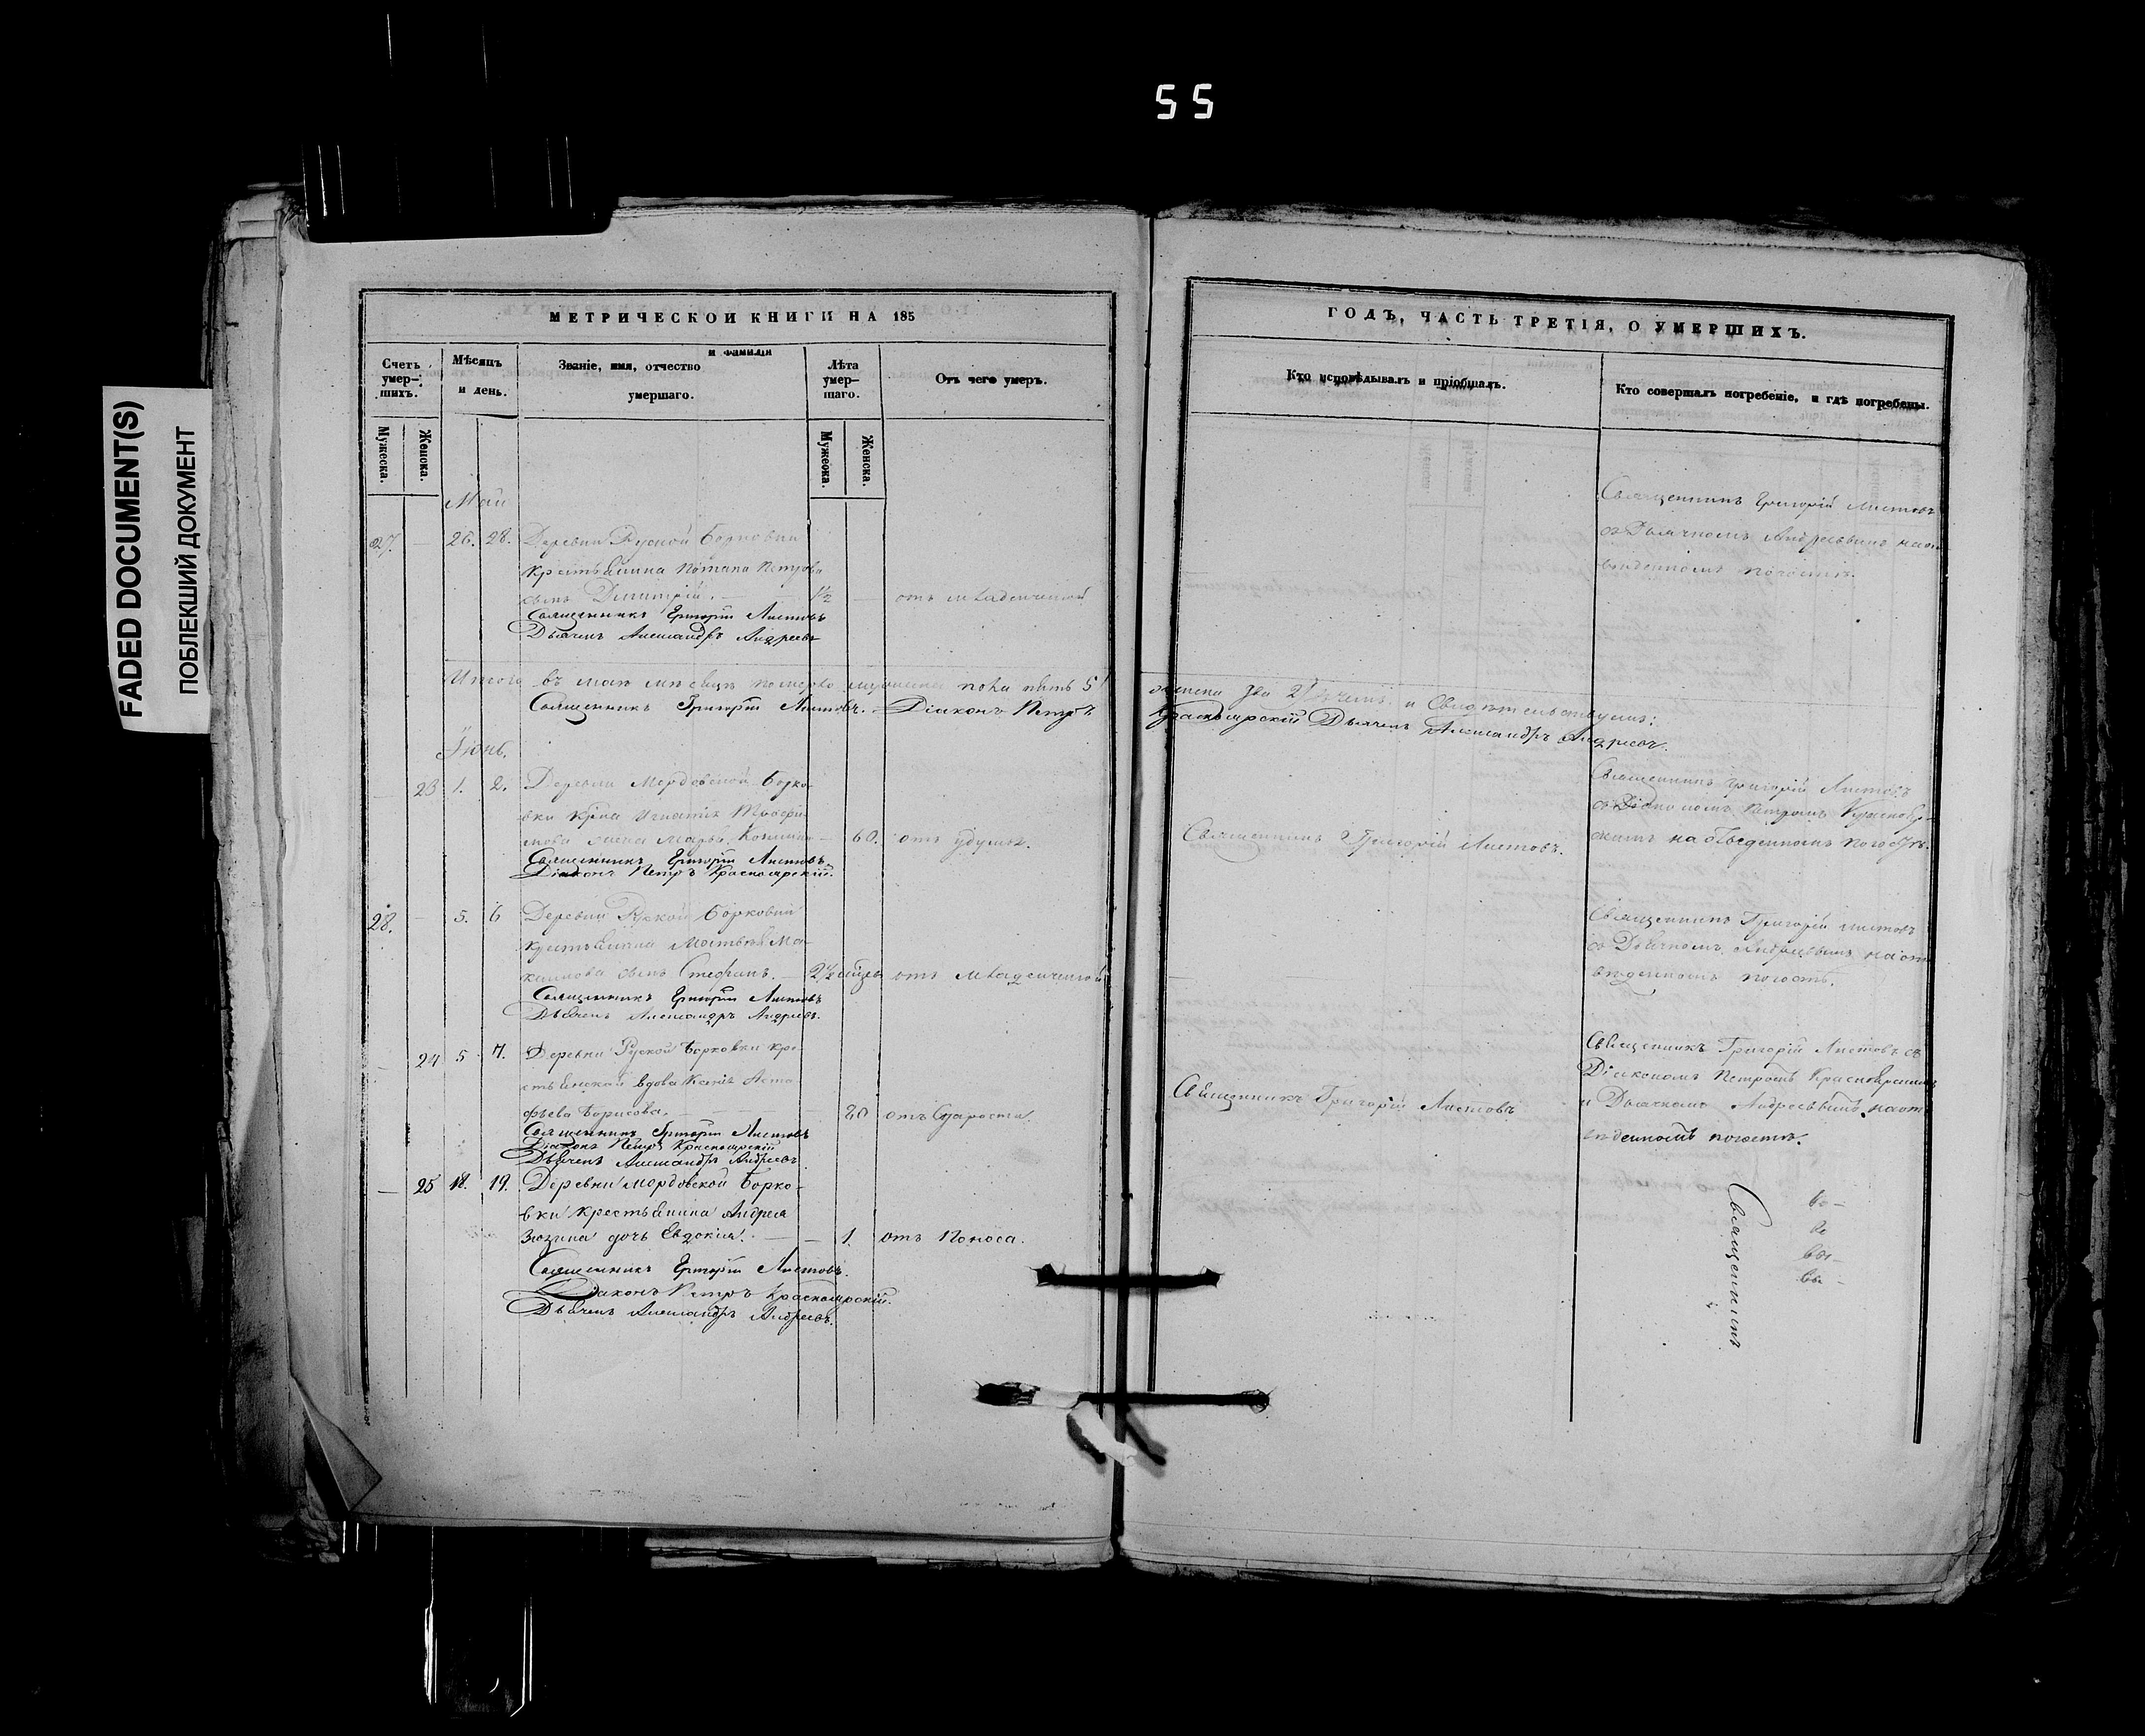 55
FADED DOCUMENT(S)
ПОБЛЕКШИЙ ДОКУМЕНТ
МЕТРИЧЕСКОЙ КНИГИ НА 185
Счетъ умер-шихъ.
Мѣсяцъ и день.
Званіе, имя, отчество и фамилія
умершаго.
Лѣта умер-шаго.
Отъ чего умеръ.
Мужеска.
Женска.
Мужеска.
Женска.
Май
27. — 26. 28. Деревни Руской Борковки
крестьянина Потапа Петрова
сынъ Димитрій. — 1½ — отъ младенческой
Священникъ Григорій Листовъ
Дьячекъ Александръ Андреевъ
Итого въ маѣ мѣсяцѣ померло мужеска пола пять 5
Священникъ Григорій Листовъ. Діаконъ Петръ
Іюнь.
23 1. 2. Деревни Мордовской Борко-
вки кр͠на Игнатія
жена Марья — 60. отъ удушья.
Священникъ Григорій Листовъ.
Діаконъ Петръ Красноярскій.
28. — 5. 6 Деревни Руской Борковки
крестьянина Матвея Ма-
сынъ Стефанъ. — 2½ отъ младенческой
Священникъ Григорій Листовъ
Дьячекъ Александръ Андреевъ.
— 24 5 7. Деревни Руской Борковки кре-
стьянская вдова Ксенія Аста-
фьева Борисова. — 80 отъ Старости
Священникъ Григорій Листовъ
Діаконъ Петръ Красноярскій
Дьячекъ Александръ Андреевъ
— 25 18. 19. Деревни Мордовской Борко-
вки крестьянина Андрея
Зюзина дочь Евдокія. — — 1. отъ Поноса.
Священникъ Григорій Листовъ.
Діаконъ Петръ Красноярскій.
Дьячекъ Александръ Андреевъ.
ГОДЪ, ЧАСТЬ ТРЕТІЯ, О УМЕРШИХЪ.
Кто исповѣдывалъ и пріобщалъ.
Кто совершалъ погребеніе, и гдѣ погребены.
Священникъ Григорій Листовъ
съ Дьячкомъ Андреевымъ на от-
веденномъ погостѣ.
женска два 2 и Свидѣтельствуемъ:
Красноярскій Дьячекъ Александръ Андреевъ.
Священникъ Григорій Листовъ
съ Діакономъ Петромъ Краснояр-
Священникъ Григорій Листовъ.
скимъ на отведенномъ погостѣ.
Священникъ Григорій Листовъ
съ Дьячкомъ Андреевымъ на от-
веденномъ погостѣ.
Священникъ Григорій Листовъ съ
Діакономъ Петромъ Красноярскимъ
Священникъ Григорій Листовъ
и Дьячкомъ Андреевымъ на от-
веденномъ погостѣ.
Священникъ